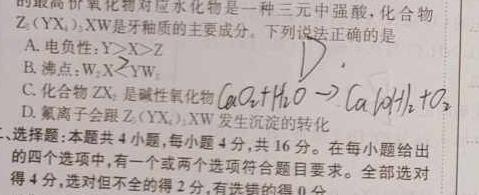 的最高价氧化物对应水化物是一种三元中强酸,化合物
Z₅(YX₄)₃XW是牙釉质的主要成分。下列说法正确的是
A. 电负性:Y>X>Z
D.
B. 沸点:W₂X>YW₃
C. 化合物 ZX₂ 是碱性氧化物 CaO₂+H₂O→Ca(OH)₂+O₂
D. 氟离子会跟 Z₅(YX₄)₃XW 发生沉淀的转化
二、选择题:本题共4小题,每小题4分,共16分。在每小题给出
的四个选项中,有一个或两个选项符合题目要求。全部选对
得4分,选对但不全的得2分,有选错的得0分